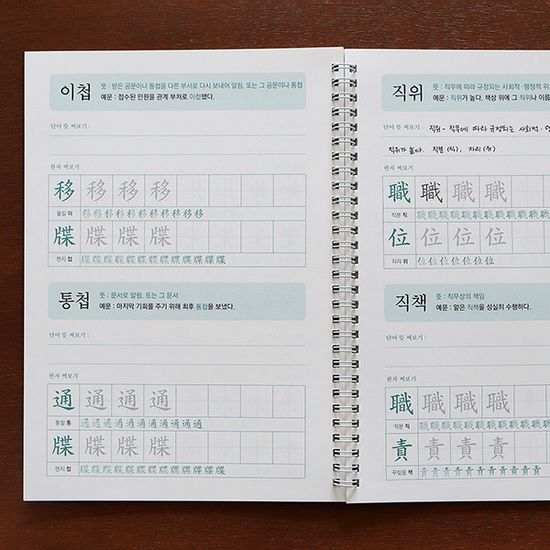 이첩
뜻 : 받은 공문이나 통첩을 다른 부서로 다시 보내어 알림. 또는 그 공문이나 통첩
예문 : 접수된 민원을 관계 부처로 이첩했다.
단어 뜻 써보기 :
한자 써보기
移 移 移 移
옮길 이 移移移移移移移移移移
牒 牒 牒 牒
편지 첩 牒牒牒牒牒牒牒牒牒牒牒
통첩
뜻 : 문서로 알림. 또는 그 문서
예문 : 마지막 기회를 주기 위해 최후 통첩을 보냈다.
단어 뜻 써보기 :
한자 써보기
通 通 通 通
통할 통 通通通通通通通通通通
牒 牒 牒 牒
편지 첩 牒牒牒牒牒牒牒牒牒牒牒
직위
뜻 : 직무에 따라 규정되는 사회적·행정적 위
예문 : 직위가 높다. 책상 위에 그 직위나 이름
단어 뜻 써보기 : 직위- 직무에 따라 규정되는 사회적·
직위가 높다. 직분 (직), 자리 (위)
한자 써보기
職 職 職 職
직분 직 職職職職職職職職
位 位 位 位
자리 위 位位位位位位位
직책
뜻 : 직무상의 책임
예문 : 맡은 직책을 성실히 수행하다.
단어 뜻 써보기 :
한자 써보기
職 職 職 職
직분 직 職職職職職職職職
責 責 責 責
꾸짖을 책 責責責責責責責責責責